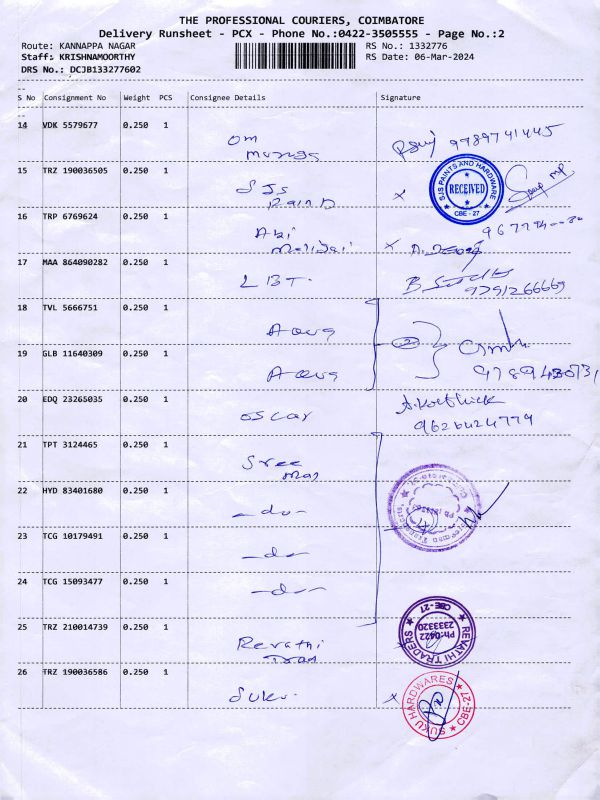 THE PROFESSIONAL COURIERS, COIMBATORE
Delivery Runsheet - PCX - Phone No.:0422-3505555 - Page No.:2
Route: KANNAPPA NAGAR RS No.: 1332776
Staff: KRISHNAMOORTHY RS Date: 06-Mar-2024
DRS No.: DCJB133277602
S No Consignment No Weight PCS Consignee Details Signature
14 VDK 5579677 0.250 1
om
muruga
9989741445
15 TRZ 190036505 0.250 1
SJS
Paint
SJS PAINTS AND HARDWARE
RECEIVED
CBE - 27
16 TRP 6769624 0.250 1
Abi
17 MAA 864090282 0.250 1
LBT
9791266669
18 TVL 5666751 0.250 1
19 GLB 11640309 0.250 1
20 EDQ 23265035 0.250 1
oscar
A. Karthick
9626424779
21 TPT 3124465 0.250 1
Sree
22 HYD 83401680 0.250 1
-do-
23 TCG 10179491 0.250 1
-do-
24 TCG 15093477 0.250 1
-do-
25 TRZ 210014739 0.250 1
Revathi
REVATHI TRADERS
Ph:0422
2333320
CBE - 27
26 TRZ 190036586 0.250 1
Suku
SUKU HARDWARES
CBE-27